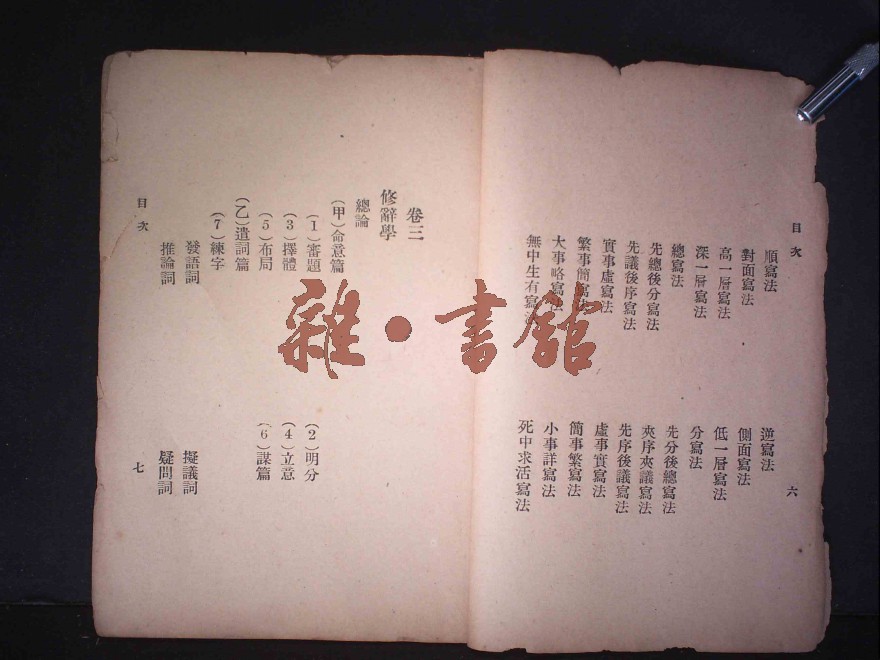 目次
六
順寫法
逆寫法
對面寫法
側面寫法
高一層寫法
低一層寫法
深一層寫法
分寫法
總寫法
先分後總寫法
先總後分寫法
夾序夾議寫法
先議後序寫法
先序後議寫法
實事虛寫法
虛事實寫法
繁事簡寫法
簡事繁寫法
大事略寫法
小事詳寫法
無中生有寫法
死中求活寫法
卷三
修辭學
總論
(甲)命意篇
(1)審題
(2)明分
(3)擇體
(4)立意
(5)布局
(6)謀篇
(乙)遣詞篇
(7)練字
發語詞
擬議詞
推論詞
疑問詞
目次
七
雜·書館